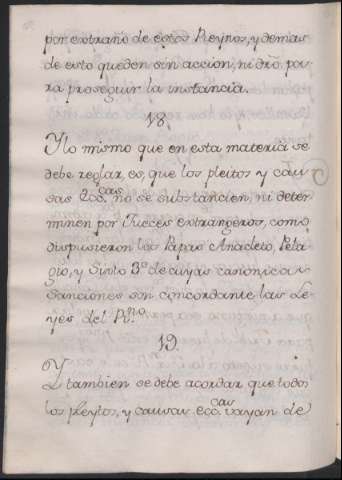 por extraño de estos Reynos, y demas
de esto queden sin accion, ni dro. pa-
ra proseguir la instancia.
18.
Y lo mismo que en esta materia se
debe reglar, es, que los pleitos y cau-
sas Ecc.cas no se substancien, ni deter
minen por Jueces extrangeros, como
dispusieron los Papas Anacleto, Pela-
gio, y Sixto 3.º de cuyas canonicas
sanciones son concordante las Le-
yes del R.no
19.
Y tambien se debe acordar que todos
los pleytos, y causas ecc.cas vayan de